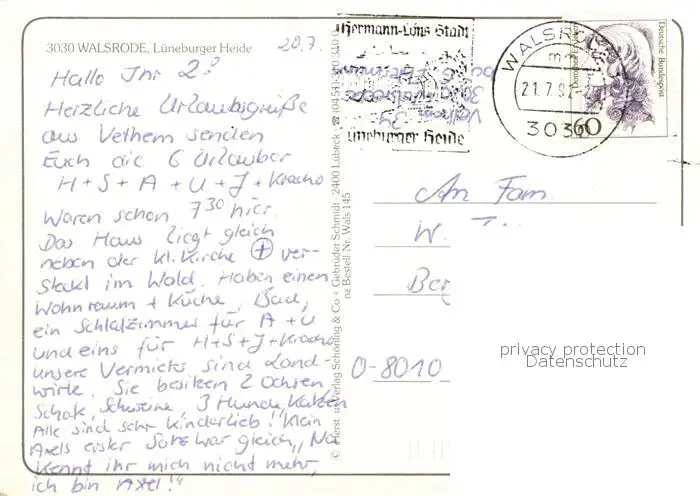 3030 WALSRODE, Lüneburger Heide
20.7.
Hallo Ihr 2!
Herzliche Urlaubsgrüße
aus Vethem senden
Euch die 6 Urlauber
H + S + A + U + J + Kracho
Waren schon 7³⁰ hier.
Das Haus liegt gleich
neben der kl. Kirche ver-
steckt im Wald. Haben einen
Wohnraum + Küche, Bad,
ein Schlafzimmer für A + U
und eins für H+S+J+Kracho
unsere Vermieter sind Land-
wirte. Sie besitzen 2 Ochsen
Schafe, Schweine, 3 Hunde, Katzen
Alle sind sehr kinderlieb! Klein
Axels erster Satz war gleich „Na
kennt ihr mich nicht mehr,
ich bin Axel!"
© Herst. u. Verlag Schöning & Co + Gebrüder Schmidt · 2400 Lübeck ☎ (0451)
nz Bestell-Nr. Wals 145
Hermann-Löns Stadt
Lüneburger Heide
WALSRODE
21.7.92
3030
Deutsche Bundespost
60
An Fam
W.
Ber
O-8010
privacy protection
Datenschutz